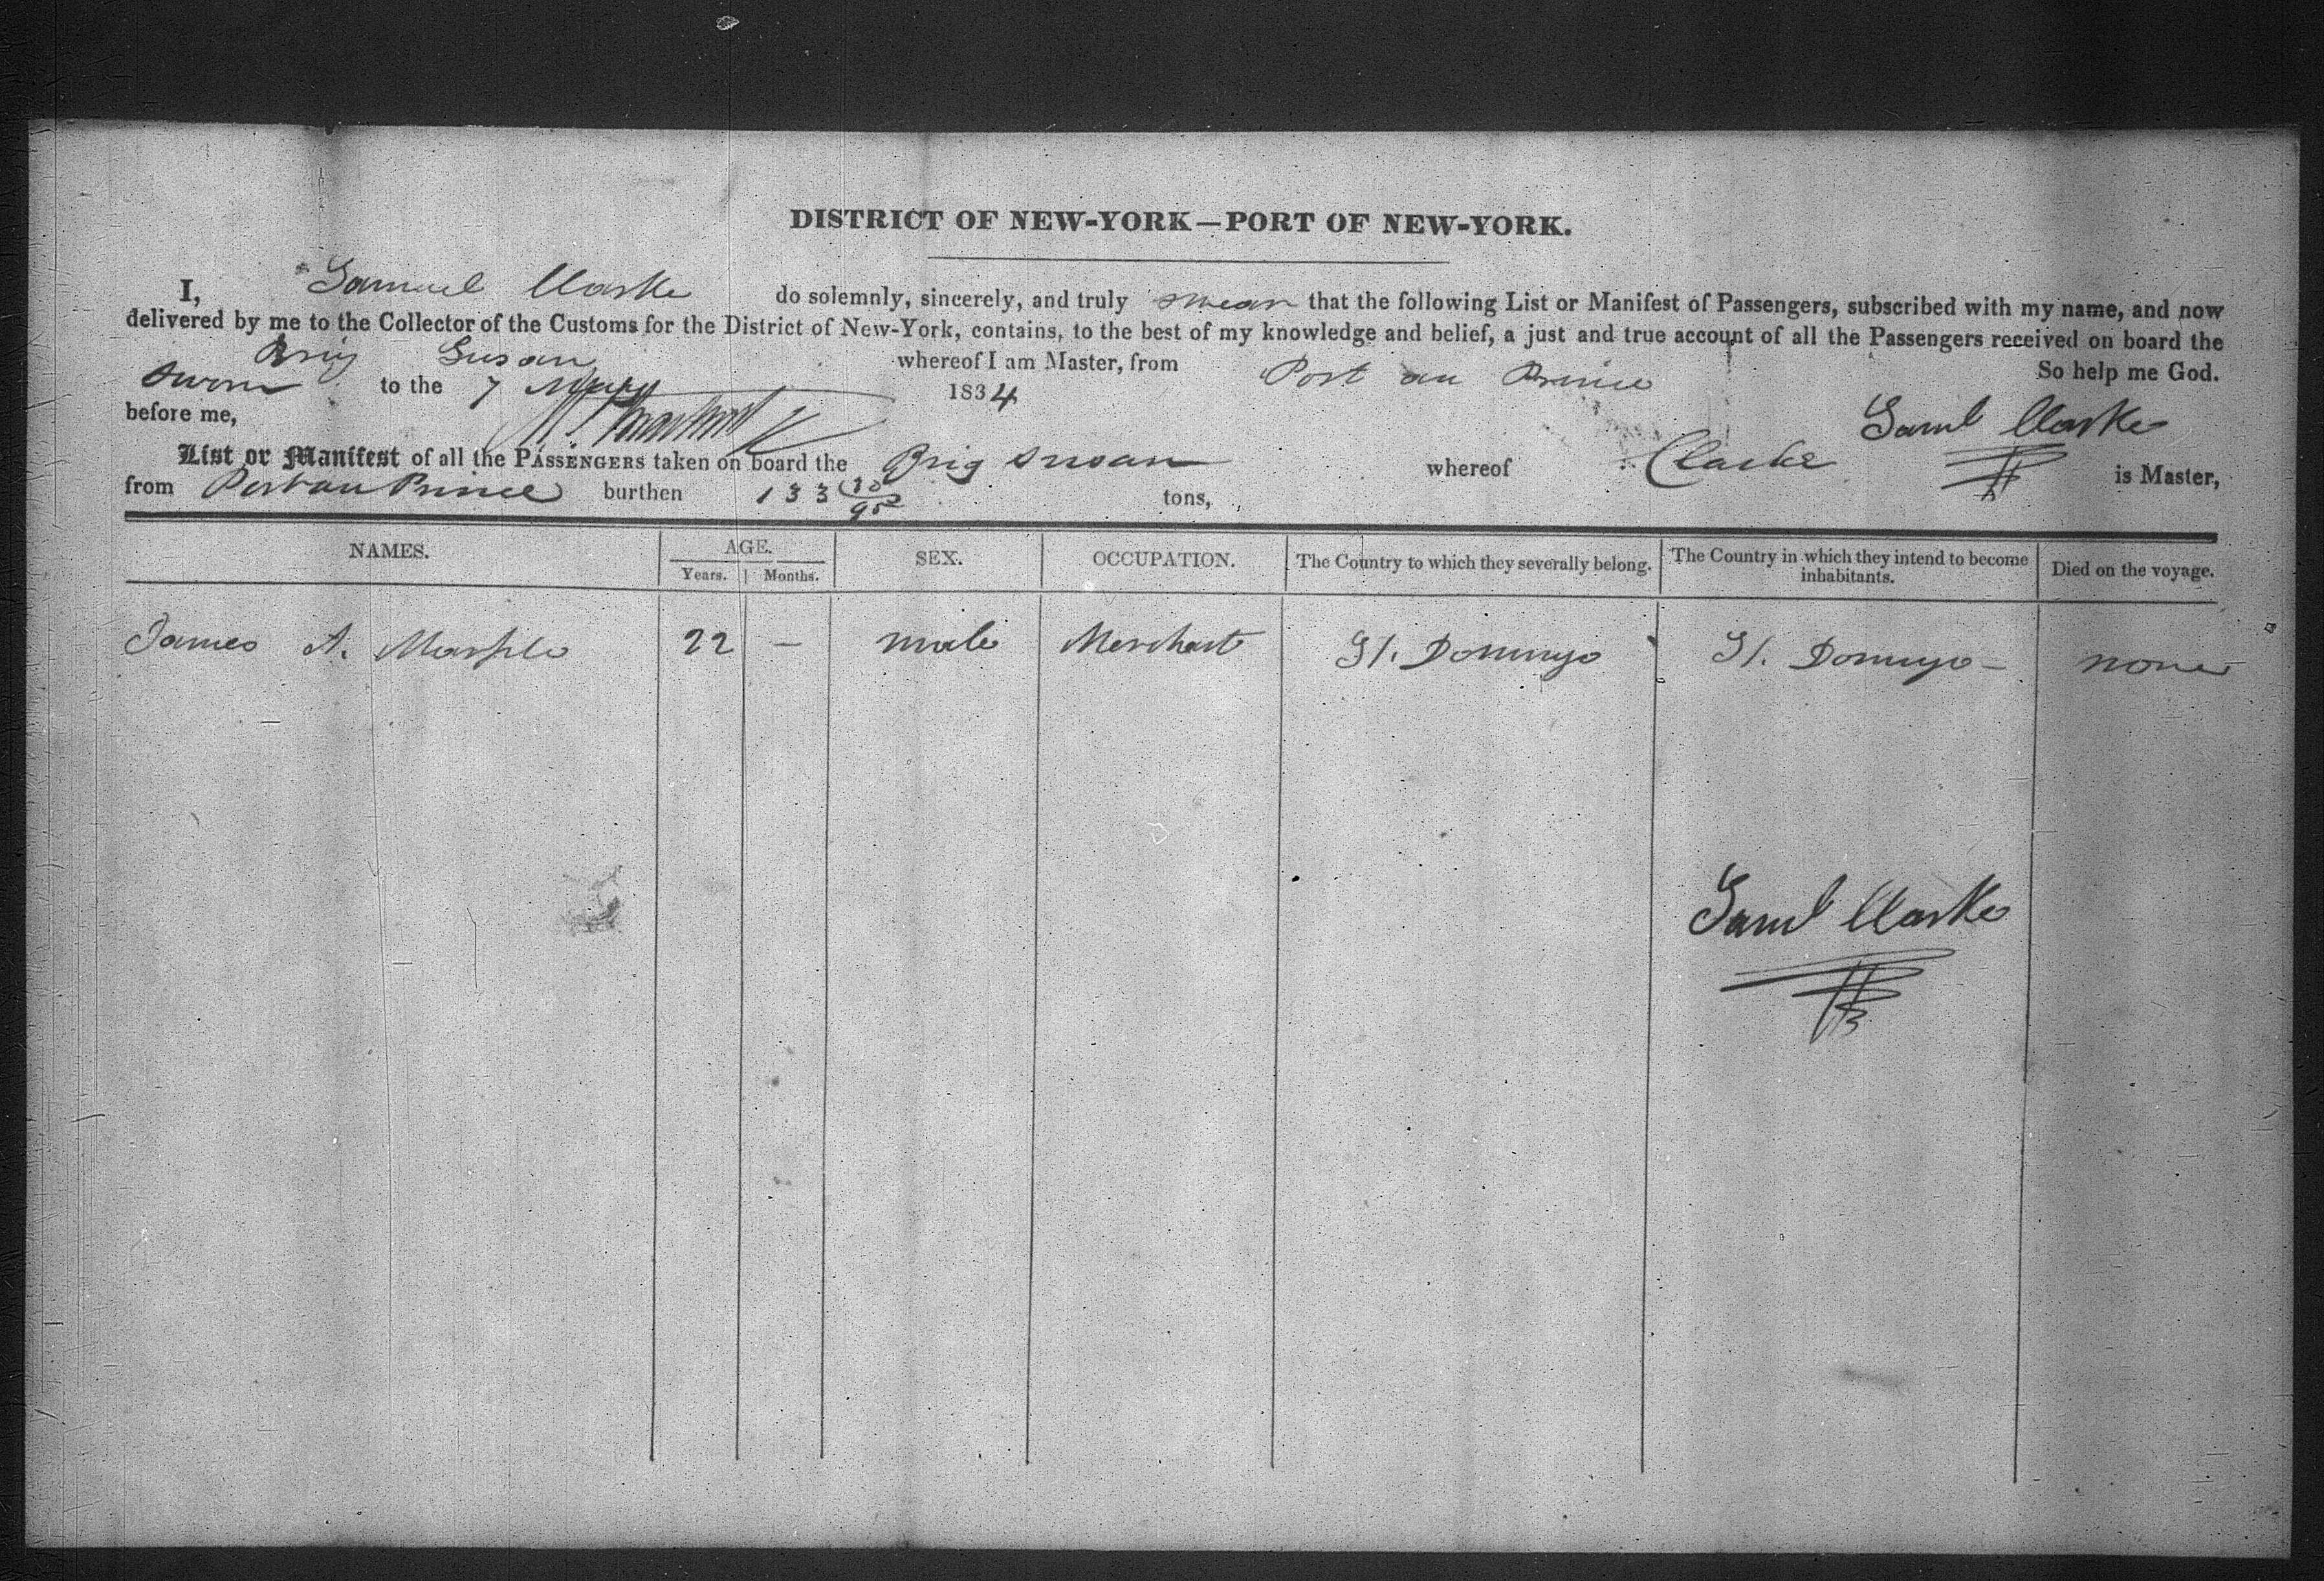 DISTRICT OF NEW-YORK—PORT OF NEW-YORK.
I, Samuel Clarke do solemnly, sincerely, and truly swear that the following List or Manifest of Passengers, subscribed with my name, and now
delivered by me to the Collector of the Customs for the District of New-York, contains, to the best of my knowledge and belief, a just and true account of all the Passengers received on board the
Brig Susan whereof I am Master, from Port au Prince So help me God.
sworn to the 7 May 1834
before me, Saml Clarke
List or Manifest of all the PASSENGERS taken on board the Brig Susan whereof Clarke is Master,
from Port au Prince burthen 133 tons,
NAMES. AGE. SEX. OCCUPATION. The Country to which they severally belong. The Country in which they intend to become inhabitants. Died on the voyage.
Years. Months.
James A. Marple 22 — male Merchant St. Domingo St. Domingo — none
Saml Clarke